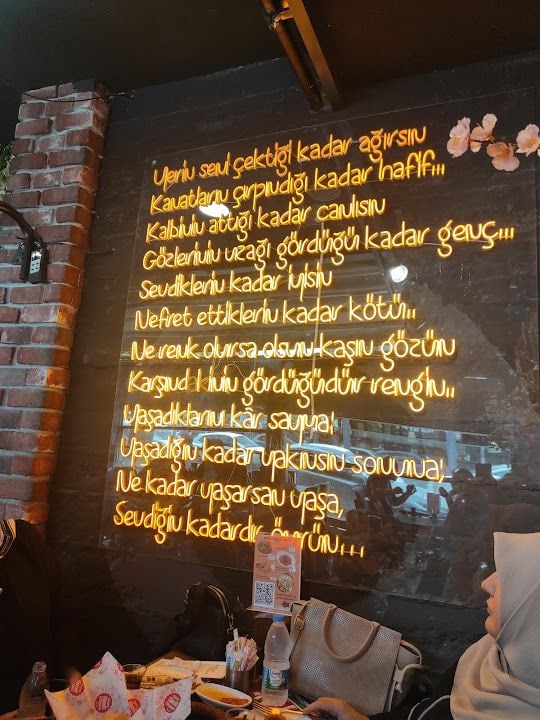 Yerin seni çektiği kadar ağırsın
Kanatların çırpındığı kadar hafif...
Kalbinin attığı kadar canlısın
Gözlerinin uzağı gördüğü kadar genç...
Sevdiklerin kadar iyisin
Nefret ettiklerin kadar kötü..
Ne renk olursa olsun kaşın gözün
Karşındakinin gördüğüdür rengin..
Yaşadıklarını kâr sayma;
Yaşadığın kadar yakınsın sonuna;
Ne kadar yaşarsan yaşa,
Sevdiğin kadardır ömrün...